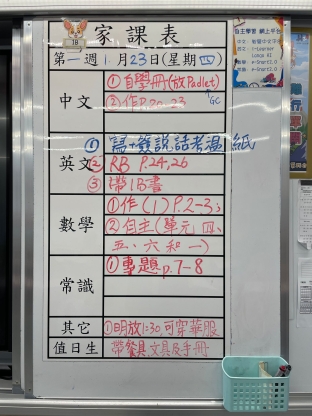 家課表
18
第一週 1月23日(星期四)
中文
①自學冊(放Padlet)
+GC
②作P.20-23
英文
①寫+簽說話考温紙
②RB P.24,26
③帶IB書
數學
①作(1)P.2-3;
②自主(單元四、
五、六和一)
常識
①專題p.7-8
其它
①明放1:30,可穿華服
值日生
帶餐具,文具及手冊
自主學習 網上平台